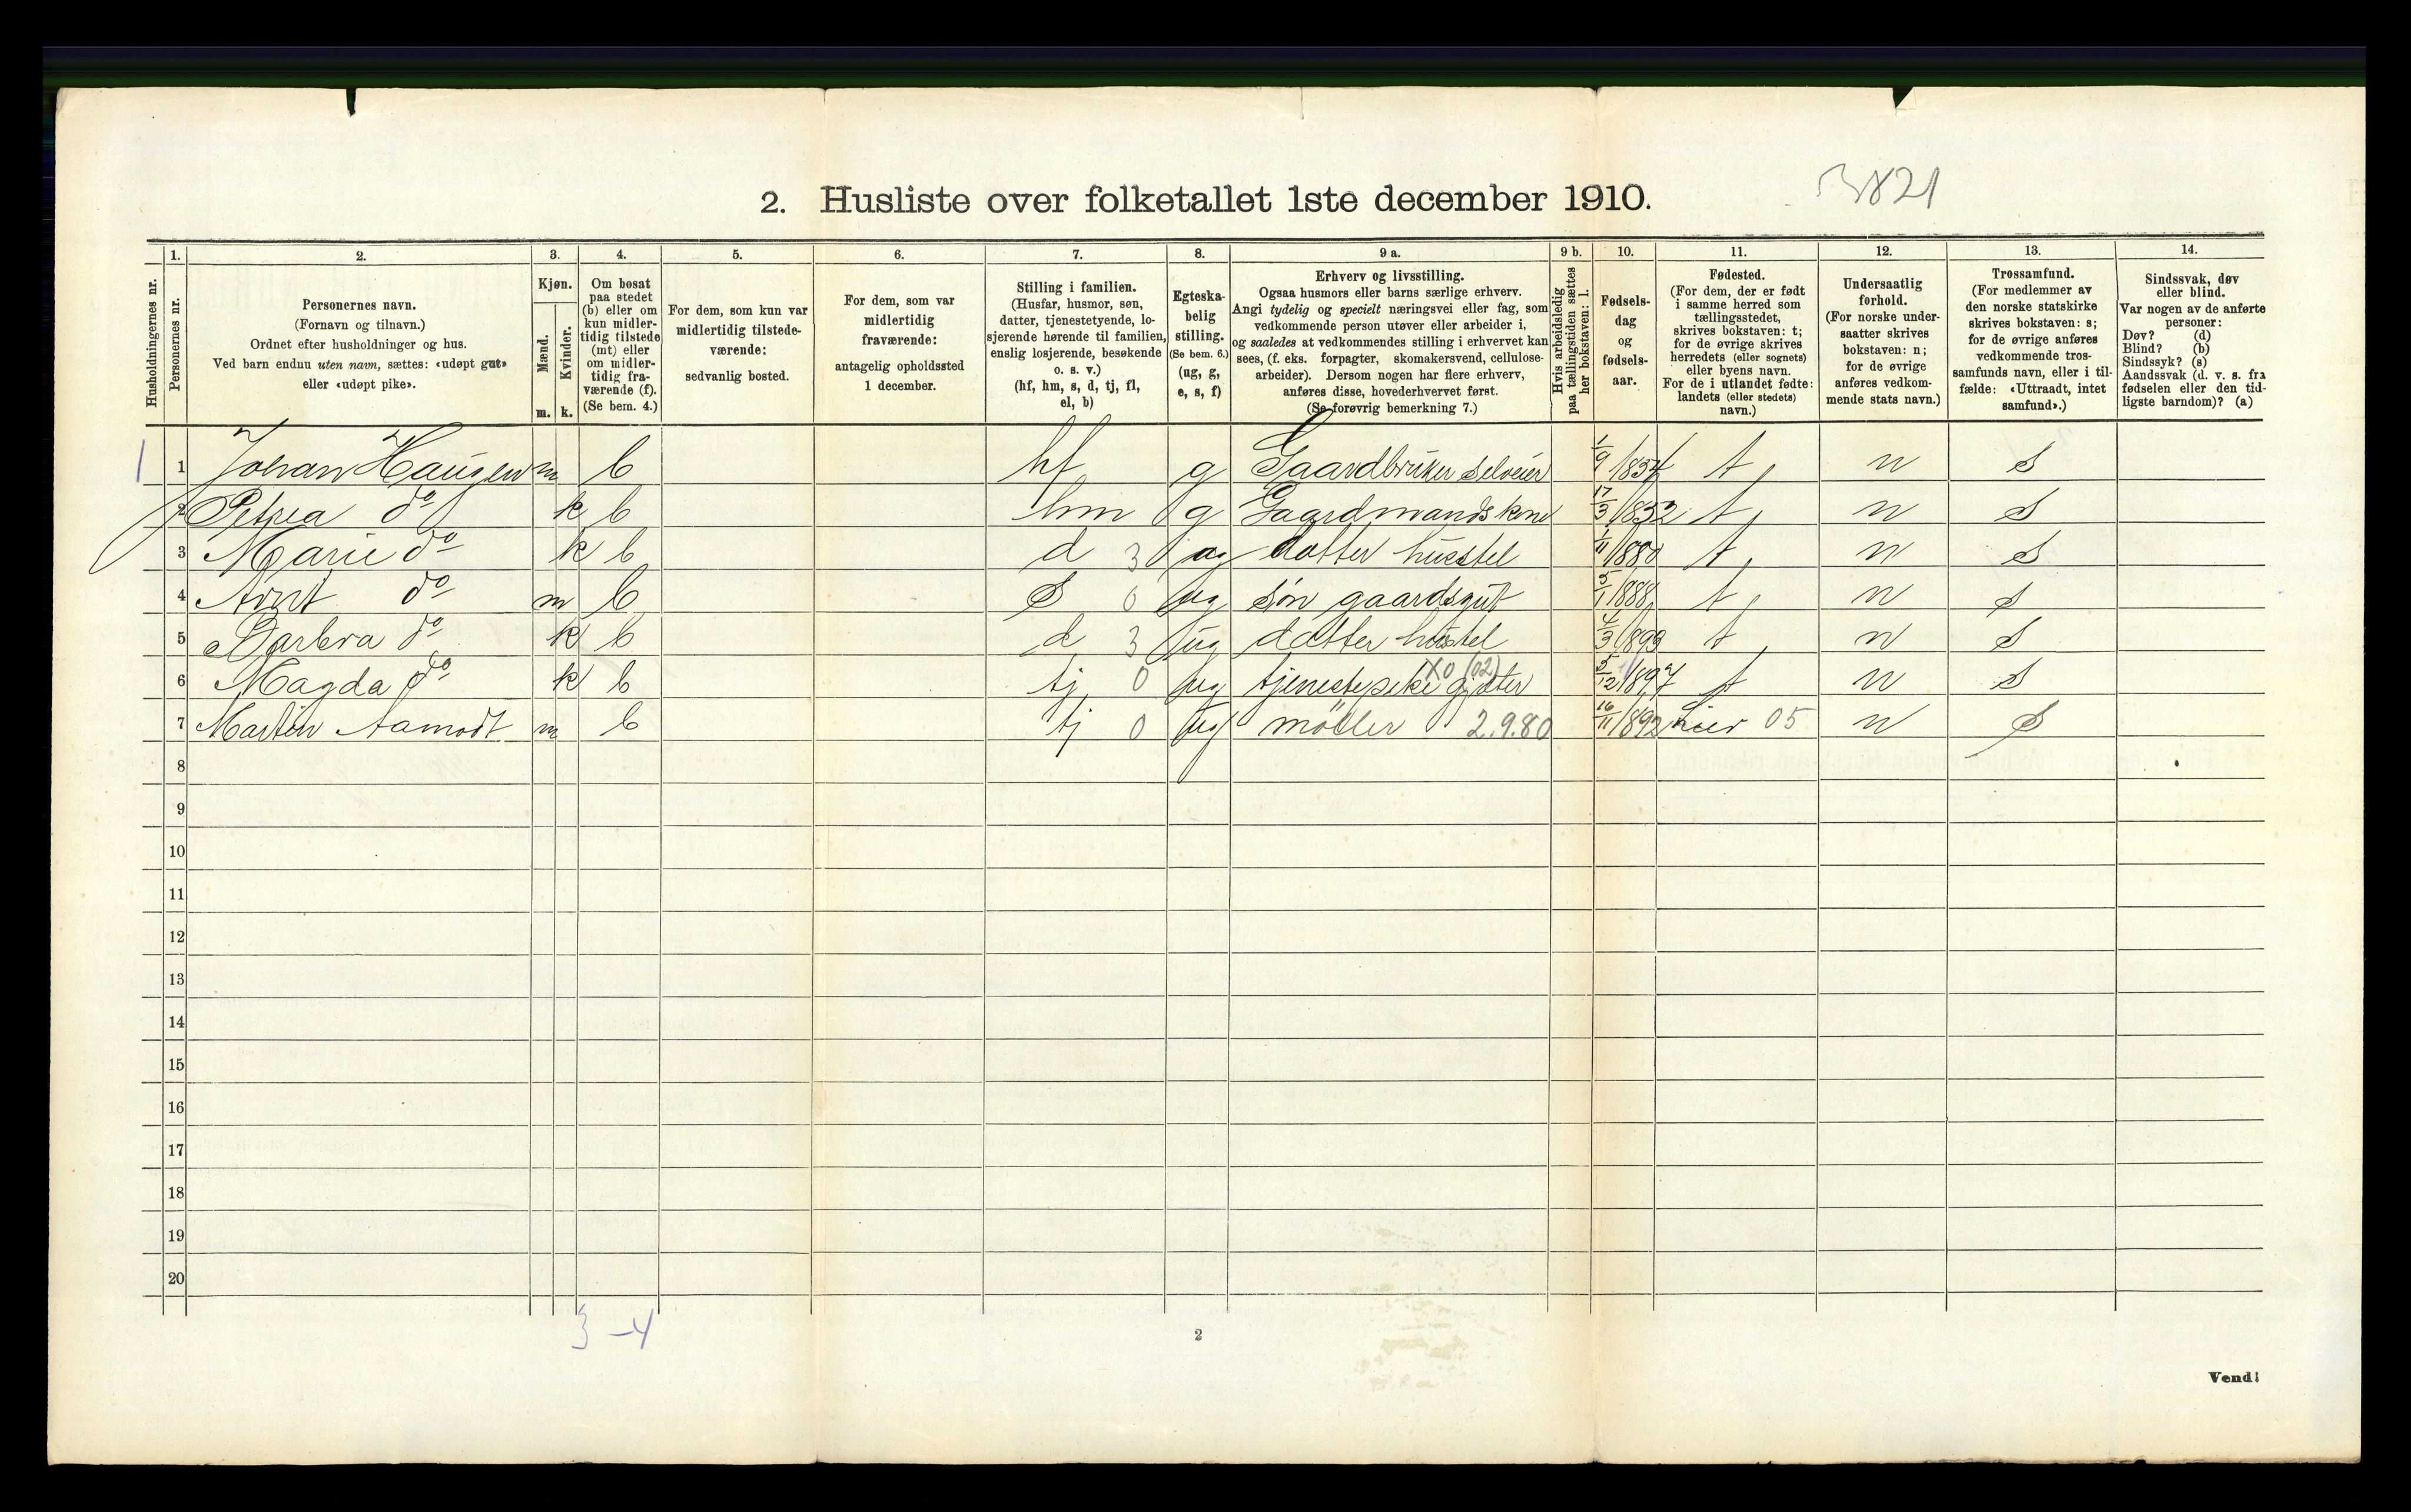 3821
2. Husliste over folketallet 1ste december 1910.
Husholdningernes nr.
1.
Personernes nr.
2.
Personernes navn.
(Fornavn og tilnavn.)
Ordnet efter husholdninger og hus.
Ved barn endnu uten navn, sættes: «udøpt gut»
eller «udøpt pike».
3.
Kjøn.
Mænd.
Kvinder.
m. k.
4.
Om bosat
paa stedet
(b) eller om
kun midler-
tidig tilstede
(mt) eller
om midler-
tidig fra-
værende (f).
(Se bem. 4.)
5.
For dem, som kun var
midlertidig tilstede-
værende:
sedvanlig bosted.
6.
For dem, som var
midlertidig
fraværende:
antagelig opholdssted
1 december.
7.
Stilling i familien.
(Husfar, husmor, søn,
datter, tjenestetyende, lo-
sjerende hørende til familien,
enslig losjerende, besøkende
o. s. v.)
(hf, hm, s, d, tj, fl,
el, b)
8.
Egteska-
belig
stilling.
(Se bem. 6.)
(ug, g,
e, s, f)
9 a.
Erhverv og livsstilling.
Ogsaa husmors eller barns særlige erhverv.
Angi tydelig og specielt næringsvei eller fag, som
vedkommende person utøver eller arbeider i,
og saaledes at vedkommendes stilling i erhvervet kan
sees, (f. eks. forpagter, skomakersvend, cellulose-
arbeider). Dersom nogen har flere erhverv,
anføres disse, hovederhvervet først.
(Se forøvrig bemerkning 7.)
9 b.
Hvis arbeidsledig
paa tællingstiden sættes
her bokstaven: l.
10.
Fødsels-
dag
og
fødsels-
aar.
11.
Fødested.
(For dem, der er født
i samme herred som
tællingsstedet,
skrives bokstaven: t;
for de øvrige skrives
herredets (eller sognets)
eller byens navn.
For de i utlandet fødte:
landets (eller stedets)
navn.)
12.
Undersaatlig
forhold.
(For norske under-
saatter skrives
bokstaven: n;
for de øvrige
anføres vedkom-
mende stats navn.)
13.
Trossamfund.
(For medlemmer av
den norske statskirke
skrives bokstaven: s;
for de øvrige anføres
vedkommende tros-
samfunds navn, eller i til-
fælde: «Uttraadt, intet
samfund».)
14.
Sindssvak, døv
eller blind.
Var nogen av de anførte
personer:
Døv? (d)
Blind? (b)
Sindssyk? (s)
Aandssvak (d. v. s. fra
fødselen eller den tid-
ligste barndom)? (a)
1 1 Johan Haugen m b hf g Gaardbruker selveier 1/9 1854 t n S
2 Petrea do k b hm g Gaardmandskone 17/3 1852 t n S
3 Marie do k b d 3 ug datter husstel 1/11 1880 t n S
4 Arnt do m b S 0 ug søn gaardsgut 5/1 1888 t n S
5 Barbra do k b d 3 ug datter husstel 4/3 1893 t n S
6 Magda do k b tj 0 ug tjenestepike X0 (02) g.dtter 5/12 1897 t n S
7 Martin Aamodt m b tj 0 ug møller 2.9.80 16/11 1892 Lier 05 n S
8
9
10
11
12
13
14
15
16
17
18
19
20
3-4
2
Vend!